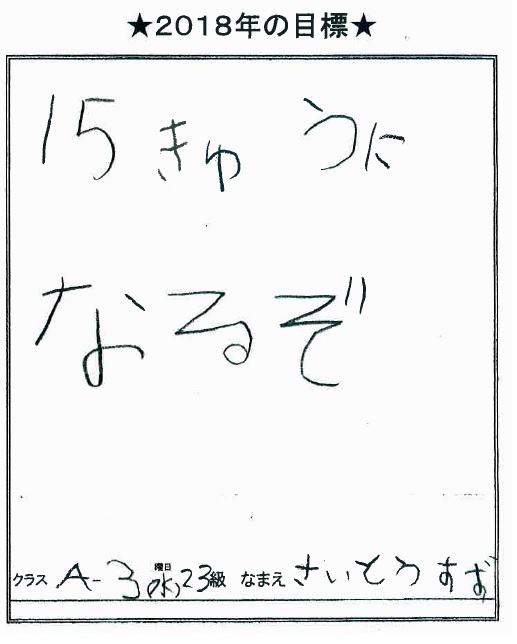 ★2018年の目標★
15きゅうに
なるぞ
クラス A-3 曜日(水) 23級 なまえ さいとうすず